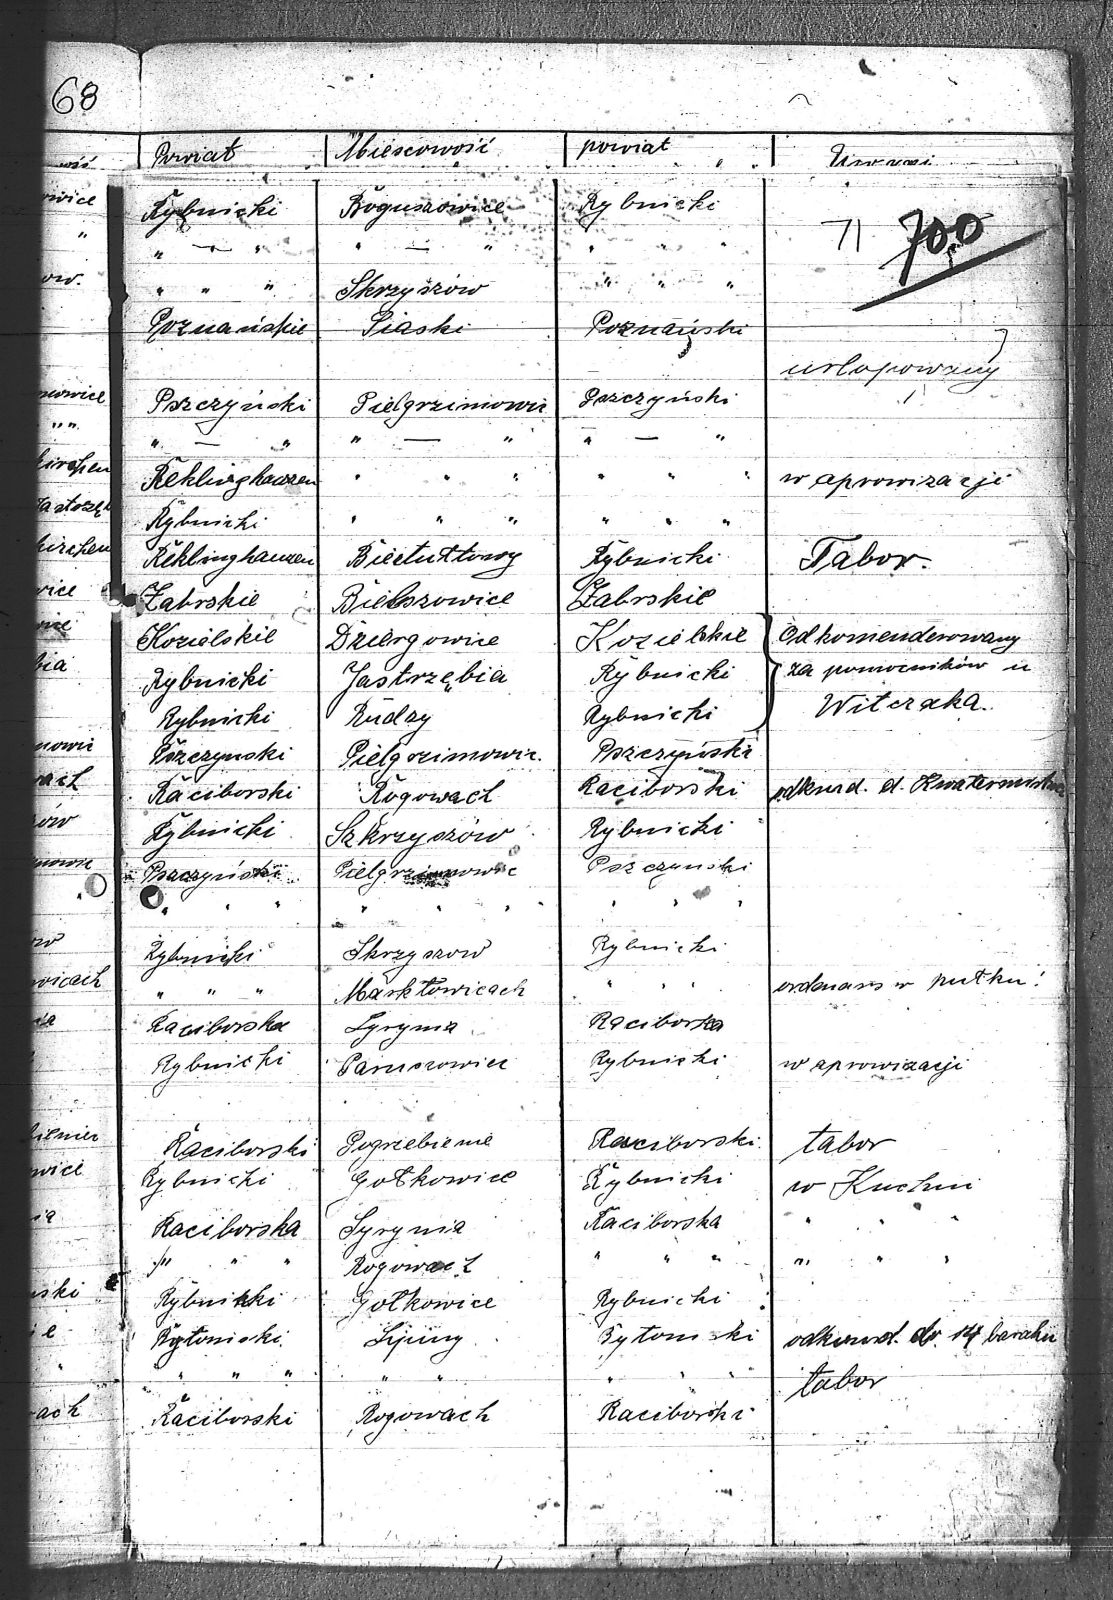 68
Powiat Miescowość powiat Uwagi
owice Rybnicki Boguszowice Rybnicki
71 700
" " — " " — " " " "
ow. " " " Skrzyszów " " "
Poznańskie Piaski Poznański
urlopowany
mowice Pszczyński Pielgrzimowic Pszczyński
"" " — " " — " " — "
kirchen Reklinghausen " " " " " " w aprowizacji
Jastrzęb Rybnicki " " " " " "
kirchen Reklinghausen Biertułtowy Rybnicki Tabor.
wice Zabrskie Bielszowice Zabrskie
Kozielskie Dziergowice Kozielskie Odkomenderowany
bia Rybnicki Jastrzębia Rybnicki za pomocników u
Rybnicki Rudzy Rybnicki Witczaka.
mowic Pszczynski Pielgrzimowic. Pszczyński
wach Raciborski Rogowach Raciborski odkmd. d.
zów Rybnicki Szkrzyszów Rybnicki
mowic Pszczyński Pielgrzimowic Pszczynski
" " " " " " " " " "
zow Rybnicki Skrzyszow Rybnicki
wicach " " " Marktowicach " " " ordenans w pułku!
ia Raciborska Syrynia Raciborska
Rybnicki Paruszowice Rybnicki w aprowizacji
Raciborski Pogrzebienie Raciborski. tabor
wice Rybnicki Gołkowice Rybnicki w Kuchni
ia Raciborska Syrynia Raciborska " " "
" " " Rogowach " " " " " "
ski Rybnicki Gołkowice Rybnicki
ie Bytomski. Lipiny Bytomski odkmd. do. 14 baraku
" " " " " " " " " tabor
ach Raciborski Rogowach Raciborski